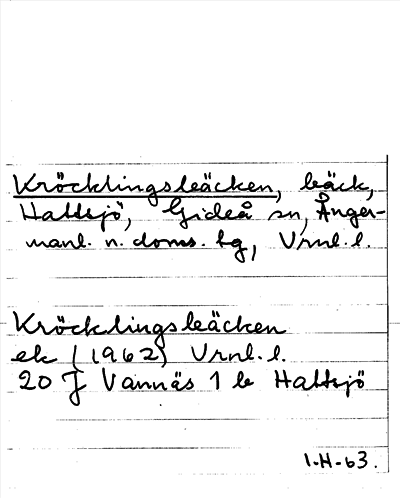 Kröcklingsbäcken, bäck,
Hattsjö, Gideå sn, Ånger-
manl. n. doms. tg, Vrnl. l.
Kröcklingsbäcken
ek (1962) Vrnl. l.
20 J Vännäs 1 b Hattsjö
1.H.63.